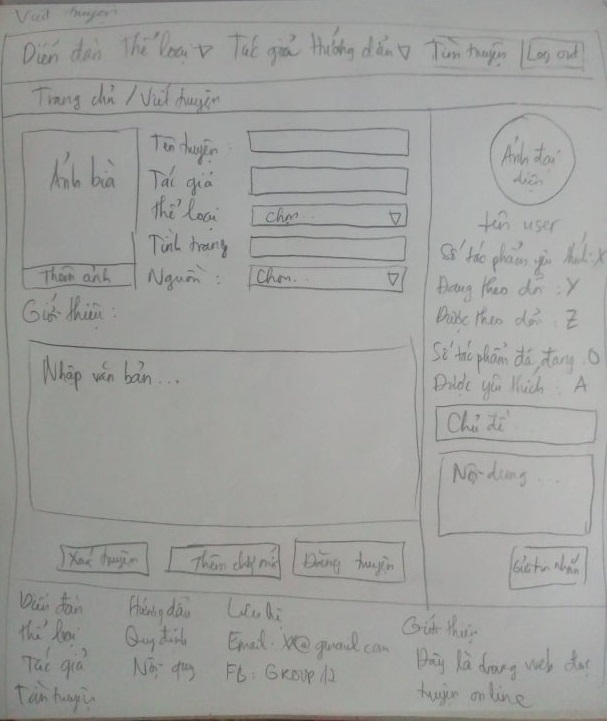 Viết truyện
Diễn đàn Thể loại ▽ Tác giả Hướng dẫn ▽ Tìm truyện Log out
Trang chủ / Viết truyện
Ảnh bìa
Thêm ảnh
Tên truyện :
Tác giả
Thể loại Chọn... ▽
Tình trạng
Nguồn : Chọn... ▽
Giới thiệu :
Nhập văn bản...
Xoá truyện Thêm chương mới Đăng truyện
Ảnh đại
diện
tên user
Số tác phẩm yêu thích: X
Đang theo dõi : Y
Được theo dõi : Z
Số tác phẩm đã đăng : O
Được yêu thích : A
Chủ đề
Nội dung ...
Gửi tin nhắn
Diễn đàn
Thể loại
Tác giả
Tìm truyện
Hướng dẫn
Quy định
Nội quy
Liên hệ
Email: XX@gmail.com
FB: GROUP12
Giới thiệu
Đây là trang web đọc
truyện online